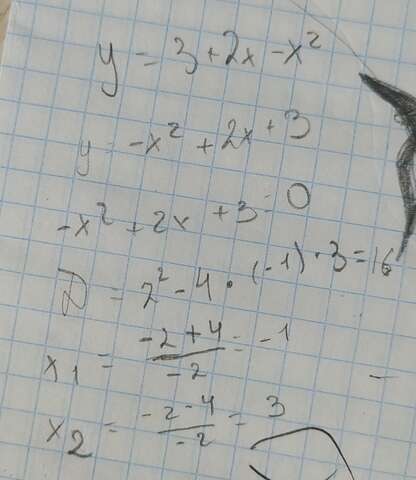 y = 3 + 2x - x²
y = -x² + 2x + 3
-x² + 2x + 3 = 0
D = 2² - 4 · (-1) · 3 = 16
x₁ = (-2 + 4)/(-2) = -1
x₂ = (-2 - 4)/(-2) = 3